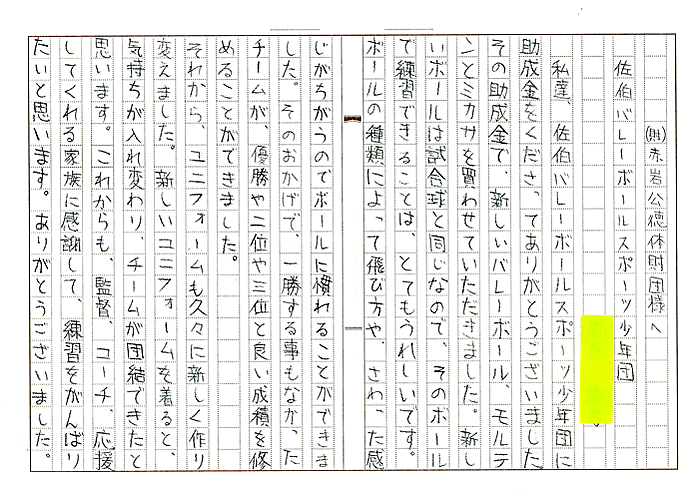 (財)赤岩公徳体財団様へ
佐伯バレーボールスポーツ少年団
私達、佐伯バレーボールスポーツ少年団に
助成金をくださってありがとうございました
その助成金で、新しいバレーボール、モルテ
ンとミカサを買わせていただきました。新し
いボールは試合球と同じなので、そのボール
で練習できることは、とてもうれしいです。
ボールの種類によって飛び方や、さわった感
じがちがうのでボールに慣れることができま
した。そのおかげで、一勝する事もなかった
チームが、優勝や二位や三位と良い成積を修
めることができました。
それから、ユニフォームも久々に新しく作り
変えました。新しいユニフォームを着ると、
気持ちが入れ変わり、チームが団結できたと
思います。これからも、監督、コーチ、応援
してくれる家族に感謝して、練習をがんばり
たいと思います。ありがとうございました。